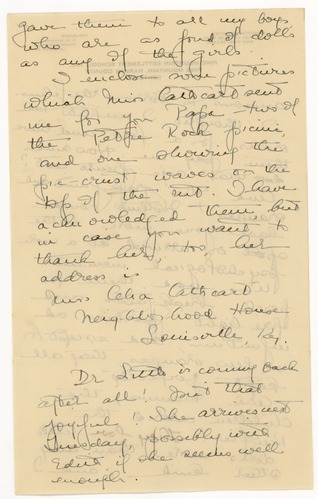 gave them to all my boys
who are as fond of dolls
as any of the girls.
I enclose some pictures
which Miss Cathcart sent
me for you Papa - two of
the Rock picnic,
and one showing the
pie-crust waves on the
top of the mt. I have
acknowledged them, but
in case you want to
thank her, too, her
address is
Miss Celia Cathcart
Neighborhood House
Louisville, Ky.
Dr Little is coming back
after all! Isn't that
joyful! She arrives next
Tuesday, possibly with
Edith if she seems well
enough.